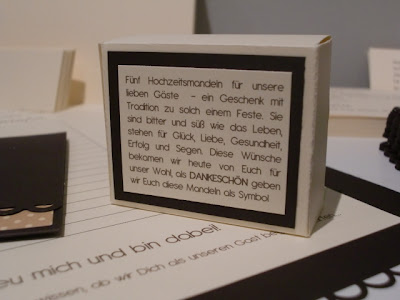 Fünf Hochzeitsmandeln für unsere
lieben Gäste - ein Geschenk mit
Tradition zu solch einem Feste. Sie
sind bitter und süß wie das Leben,
stehen für Glück, Liebe, Gesundheit,
Erfolg und Segen. Diese Wünsche
bekamen wir heute von Euch für
unser Wohl, als DANKESCHÖN geben
wir Euch diese Mandeln als Symbol
eu mich und bin dabei!
wissen, ob wir Dich als unseren Gast